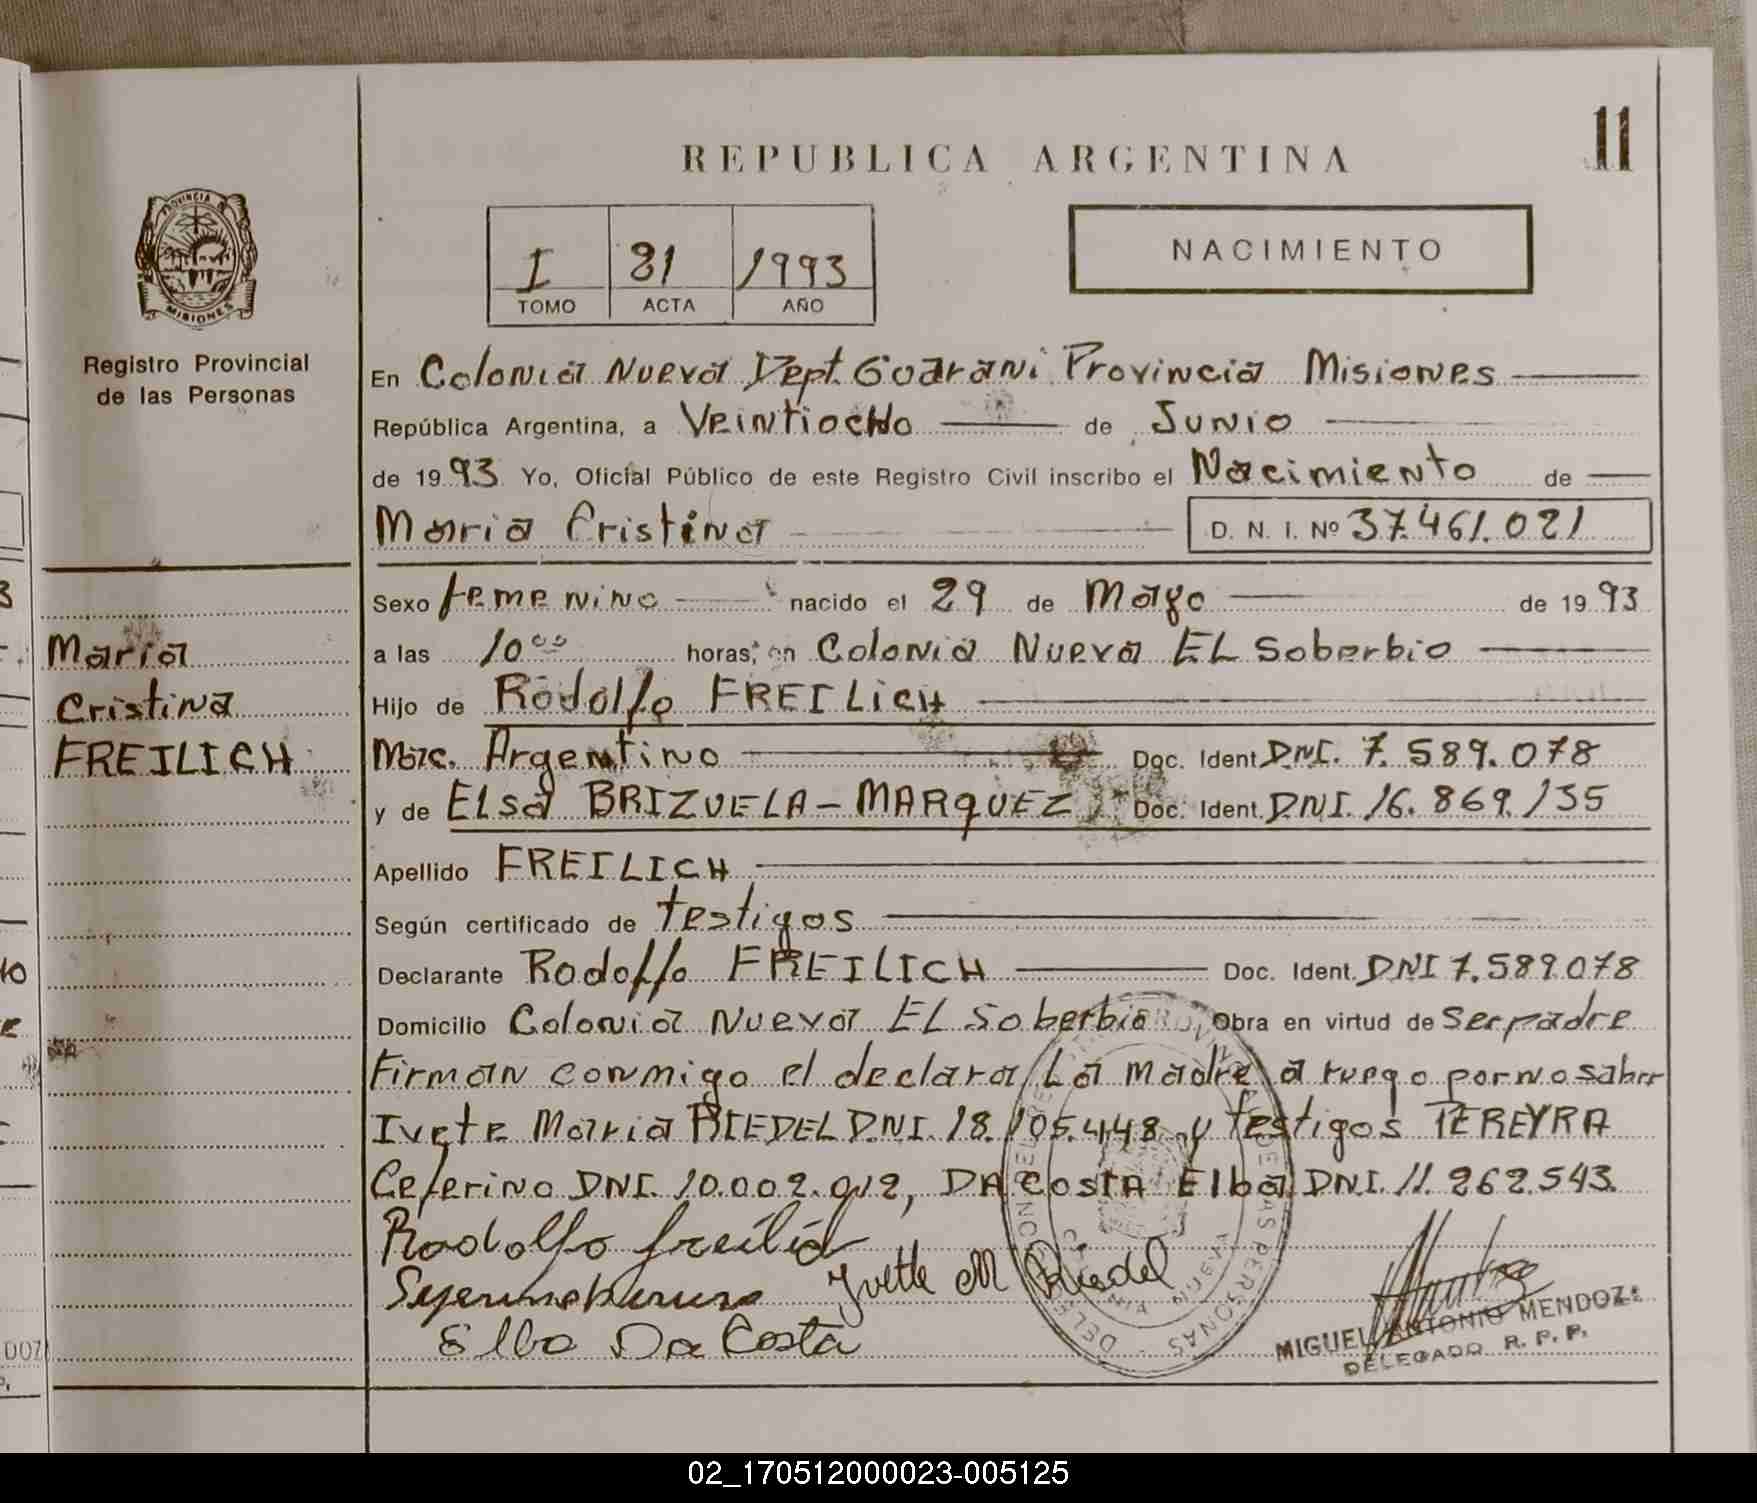 11
REPUBLICA ARGENTINA
PROVINCIA DE
MISIONES
Registro Provincial
de las Personas
I 81 1993
TOMO ACTA AÑO
NACIMIENTO
En Colonia Nueva Dept. Guarani Provincia Misiones
República Argentina, a Veintiocho de Junio
de 1993 Yo, Oficial Público de este Registro Civil inscribo el Nacimiento de
Maria Cristina D. N. I. Nº 37.461.021
Sexo femenino nacido el 29 de Mayo de 1993
a las 10 00 horas, en Colonia Nueva EL Soberbio
Hijo de Rodolfo FREILICH
Nac. Argentino Doc. Ident. DNI. 7.589.078
y de ELsa BRIZUELA-MARQUEZ Doc. Ident. DNI. 16.869.135
Apellido FREILICH
Según certificado de testigos
Declarante Rodolfo FREILICH Doc. Ident. DNI 7.589.078
Domicilio Colonia Nueva EL Soberbio Obra en virtud de Ser padre
Firman conmigo el declara, La madre a ruego por no saber
Ivete Maria RIEDEL D.NI. 18.105.448 y testigos PEREYRA
Ceferino DNI. 10.002.912, DA COSTA Elba DNI. 11.262.543.
Rodolfo Freilich
Yvette M Riedel
Elba Da Costa
MIGUEL ANTONIO MENDOZA
DELEGADO R. P. P.
Maria
Cristina
FREILICH
02_170512000023-005125